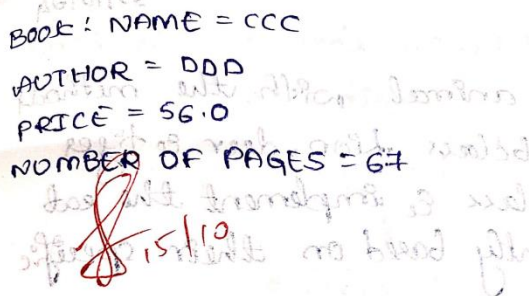 BOOK: NAME = CCC
AUTHOR = DDD
PRICE = 56.0
NUMBER OF PAGES = 67
15/10